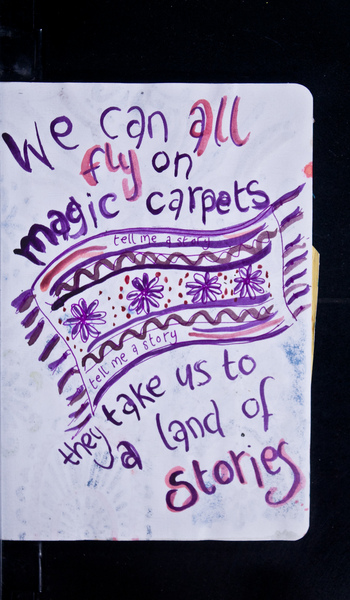 We can all
fly on
magic carpets
tell me a story
tell me a story
they take us to
a land of
stories